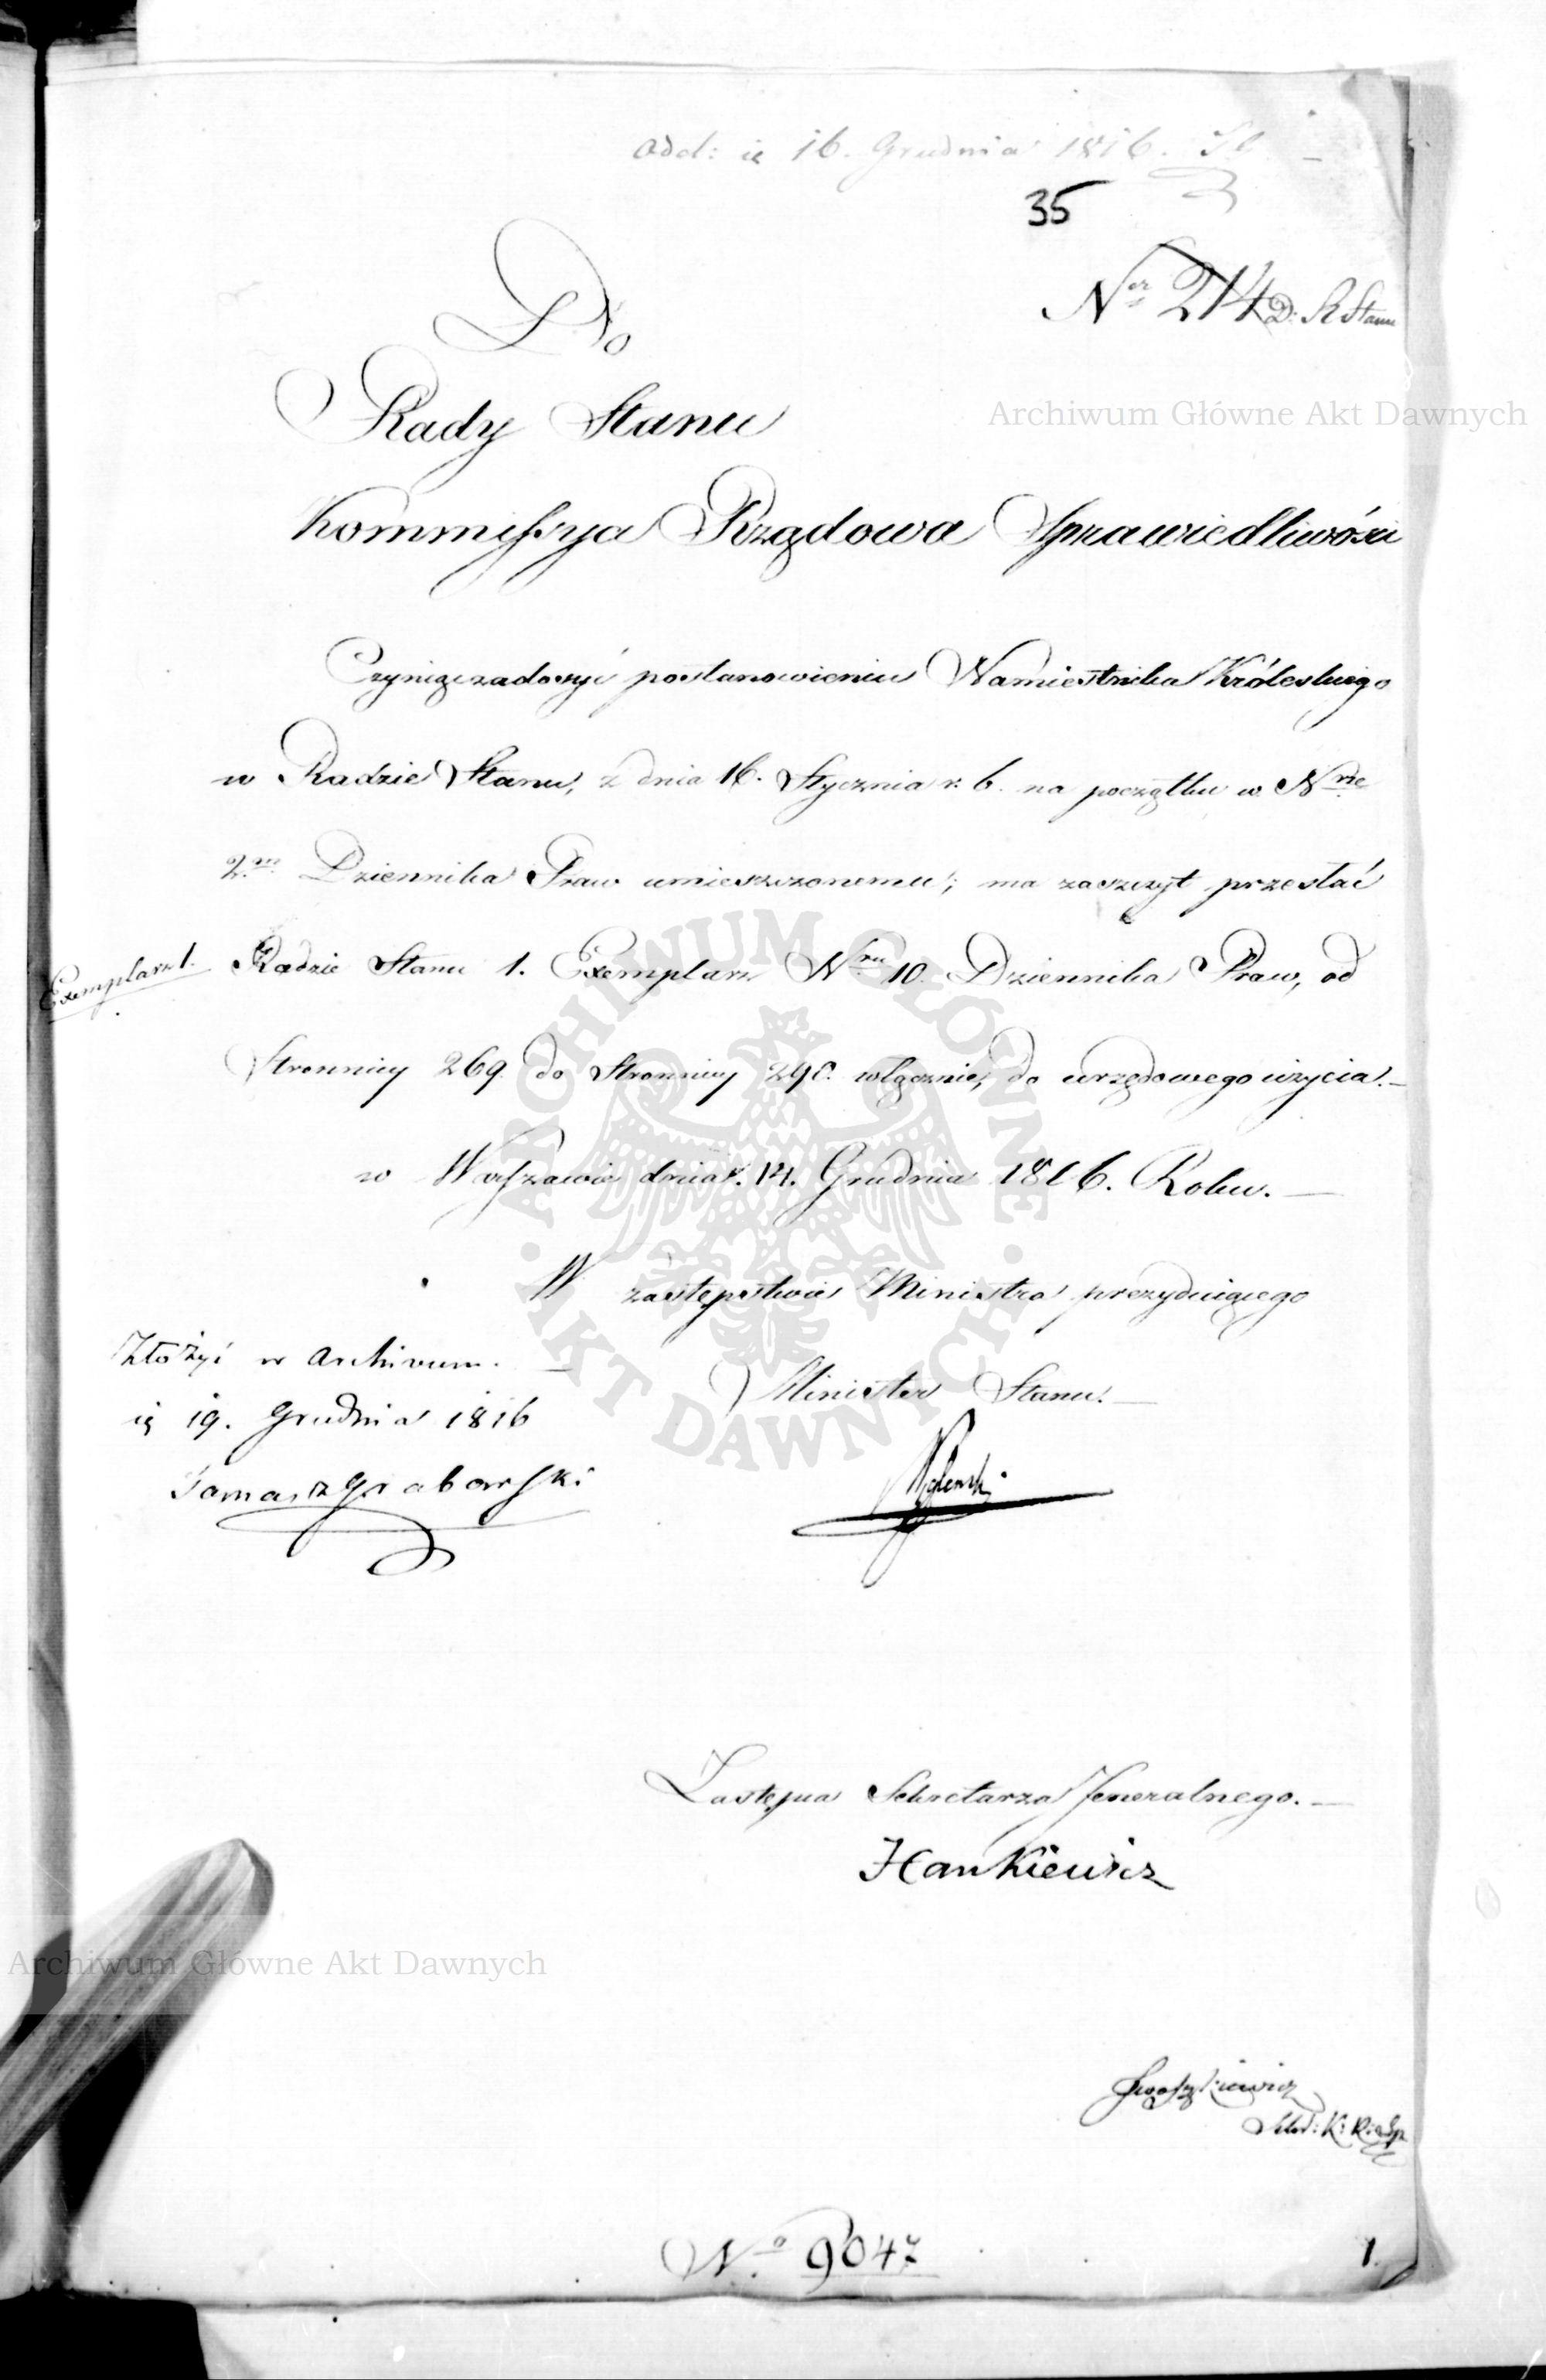 Odd: d. 16. Grudnia 1816.
35
Nr 214 D: R Stanu
Do
Rady Stanu
Archiwum Główne Akt Dawnych
Kommissya Rządowa Sprawiedliwości
Czyniąc zadosyć postanowieniu Namiestnika Królewskiego
w Radzie Stanu, z dnia 16. Stycznia r. b. na początku w Nrze
2m Dziennika Praw umieszczonemu; ma zaszczyt przesłać
Exemplarz 1.
Radzie Stanu 1. Exemplarz Nru 10. Dziennika Praw, od
Stronnicy 269 do Stronnicy 290. włącznie, do urzędowego użycia.—
w Warszawie dnia 14. Grudnia 1816. Roku.—
W zastępstwie Ministra prezydującego
Minister Stanu.—
Złożyć w Archivum.—
19. Grudnia 1816
Tomasz Grabowski
Zastępca Sekretarza Jeneralnego.—
Hankiewicz
Archiwum Główne Akt Dawnych
No 9047
1.
ARCHIWUM GŁÓWNE
· AKT DAWNYCH ·